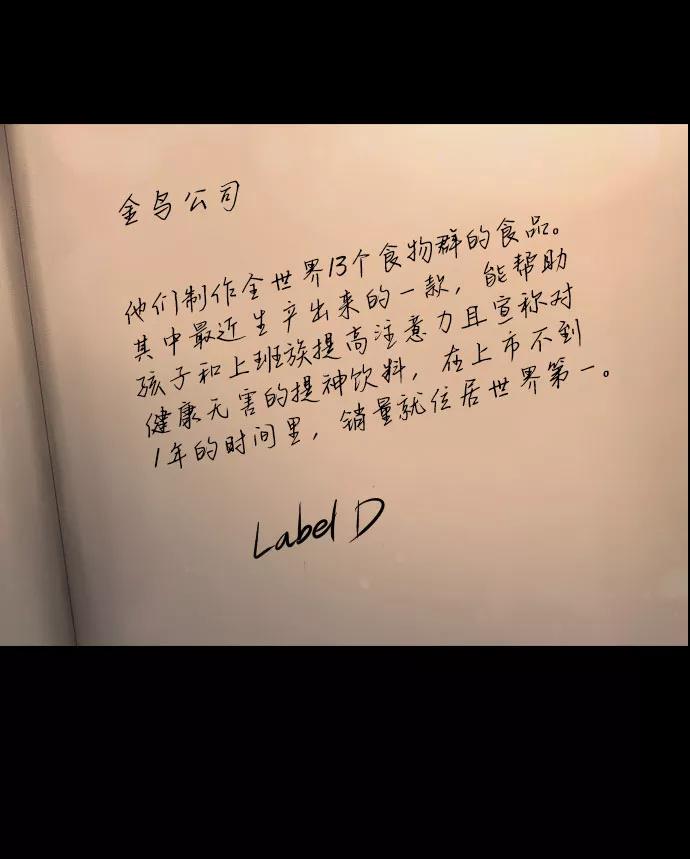 金鸟公司
他们制作全世界13个食物群的食品。
其中最近生产出来的一款，能帮助
孩子和上班族提高注意力且宣称对
健康无害的提神饮料，在上市不到
1年的时间里，销量就位居世界第一。
Label D